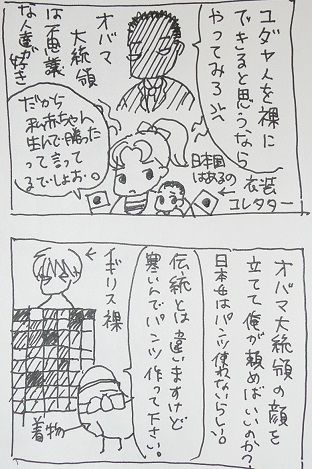 ユダヤ人を裸に
できると思うなら
やってみろ
オバマ
大統領
は
な人達が好き
だから
私赤ちゃん
生んで勝った
って言って
るでしょお。
日本国
はあるの
衣装
コレクター
オバマ大統領の顔を
立てて俺が頼めばいいのか?
日本女はパンツ使わないらしい。
伝統とは違いますけど
寒いんでパンツ作って下さい。
イギリス裸
着物